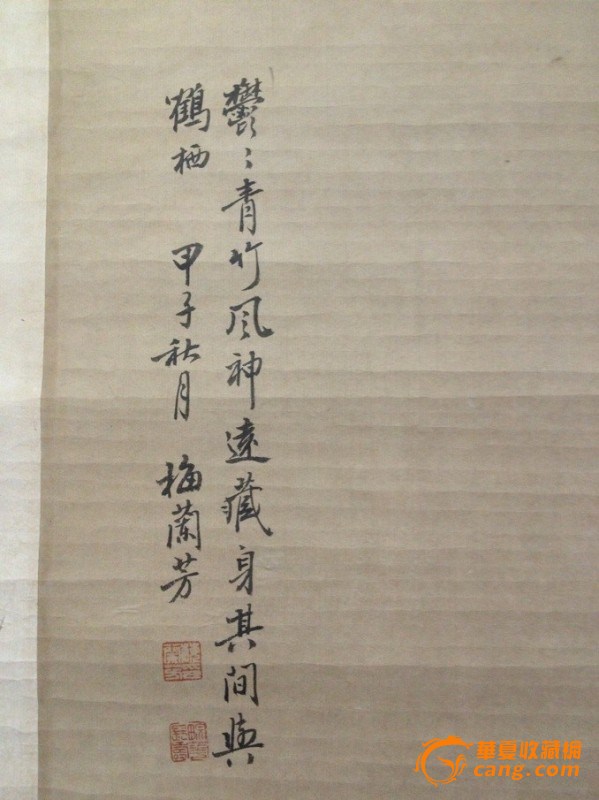 鬱〻青竹风神遠藏身其间與
鶴栖 甲子秋月 梅蘭芳
華夏收藏網
cang.com